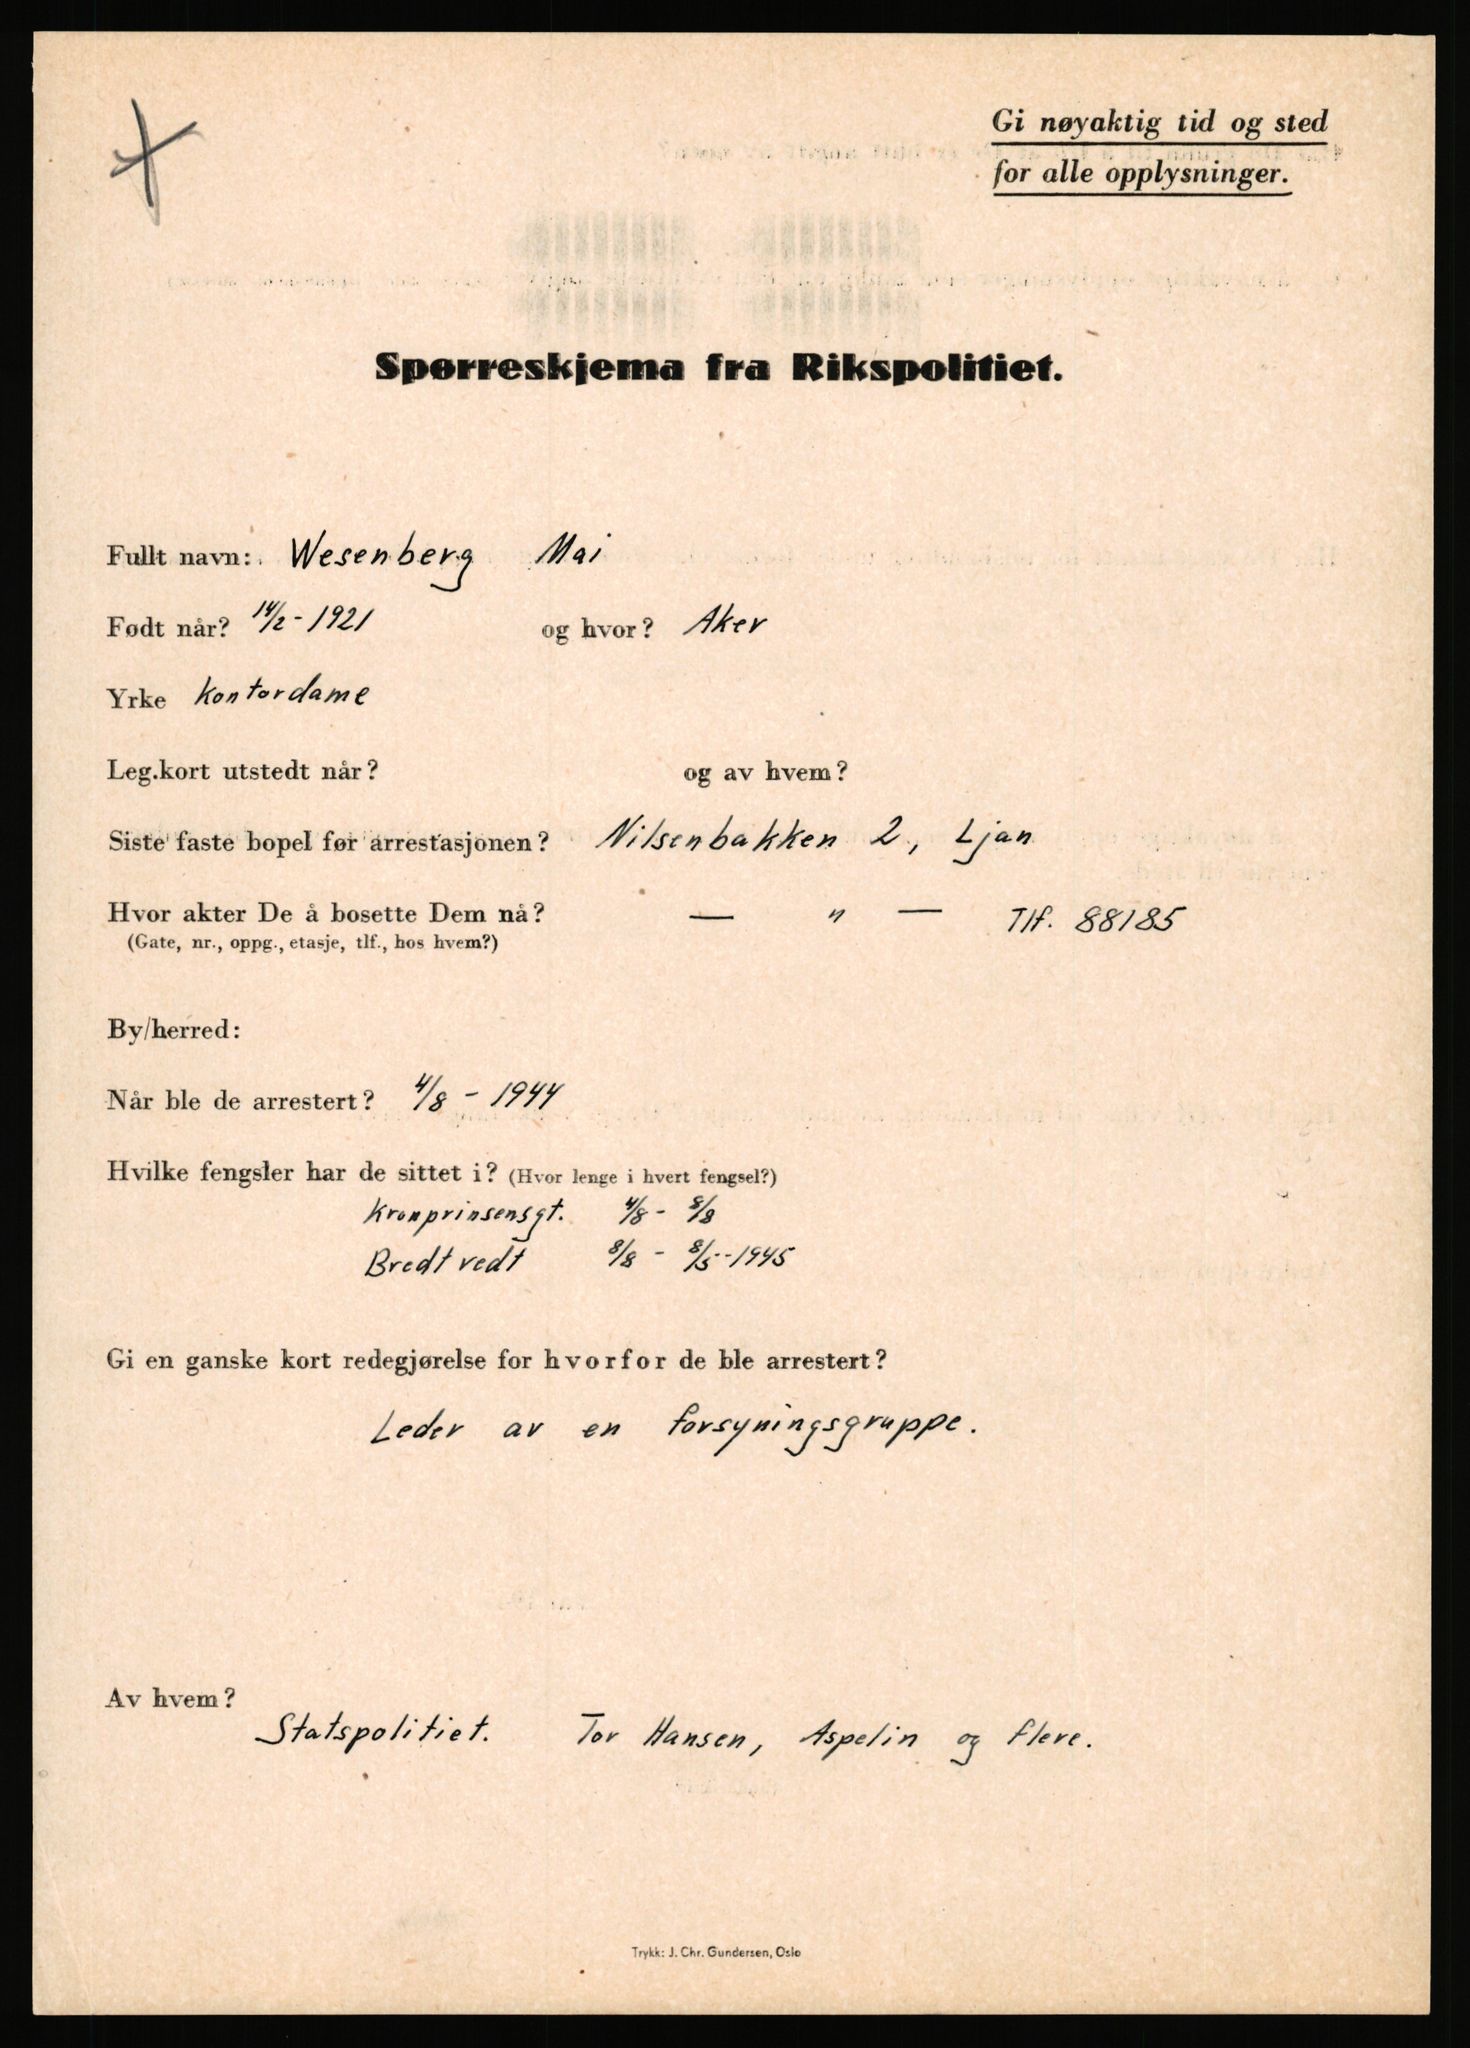 Gi nøyaktig tid og sted
for alle opplysninger.
Spørreskjema fra Rikspolitiet.
Fullt navn: Wesenberg Mai
Født når? 14/2 - 1921 og hvor? Aker
Yrke Kontordame
Leg.kort utstedt når? og av hvem?
Siste faste bopel før arrestasjonen? Nilsenbakken 2, Ljan
Hvor akter De å bosette Dem nå? — " — Tlf. 88185
(Gate, nr., oppg., etasje, tlf., hos hvem?)
By/herred:
Når ble de arrestert? 4/8 - 1944
Hvilke fengsler har de sittet i? (Hvor lenge i hvert fengsel?)
Kronprinsensgt. 4/8 - 8/8
Bredtvedt 8/8 - 8/5 - 1945
Gi en ganske kort redegjørelse for hvorfor de ble arrestert?
Leder av en forsyningsgruppe.
Av hvem?
Statspolitiet. Tor Hansen, Aspelin og flere.
Trykk: J. Chr. Gundersen, Oslo